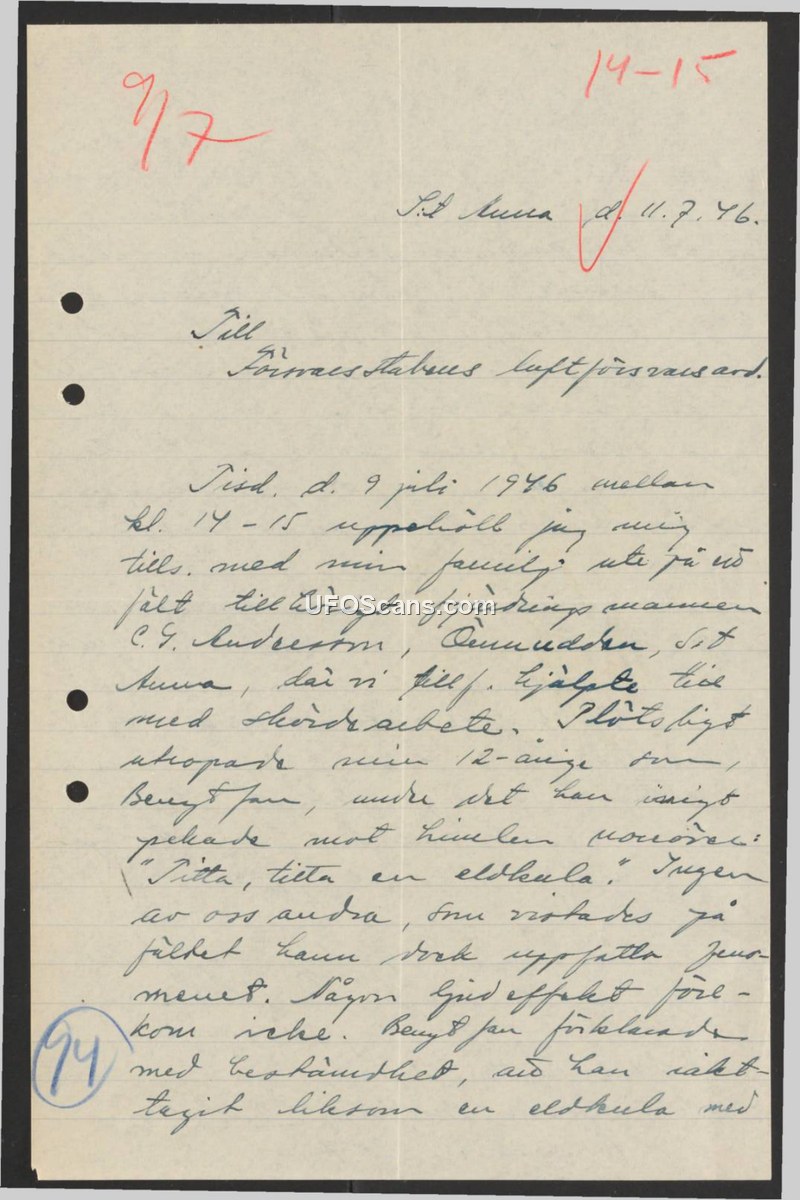 9/7
14-15
S:t Anna d. 11.7.46.
Till
Försvarsstabens luftförsvarsavd.
Tisd. d. 9 juli 1946 mellan
kl. 14-15 uppehöll jag mig
tills. med min familj ute på ett
fält tillhörigt fjärdingsmannen
UFOScans.com
C. G. Andersson, Örnudden, S:t
Anna, där vi tillf. hjälpte till
med skördearbete. Plötsligt
utropade min 12-årige son,
Bengt Jan, under det han ivrigt
pekade mot himlen norröver:
"Titta, titta en eldkula." Ingen
av oss andra, som vistades på
fältet hann dock uppfatta feno-
menet. Någon ljudeffekt före-
kom icke. Bengt Jan förklarade
med bestämdhet, att han iakt-
tagit liksom en eldkula med
94